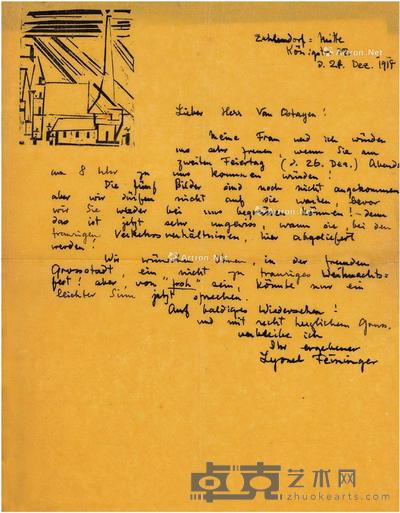 Zehlendorf = Mitte
Königstr. 
d. 24. Dez. 1918
Lieber Herr Van
Meine Frau und ich würden
uns sehr freuen, wenn Sie am
zweiten Feiertag (d. 26. Dez.) Abends
um 8 Uhr zu uns kommen würden!
Die fünf Bilder sind noch nicht angekommen
aber wir dürfen nicht auf die warten, bevor
wir Sie wieder bei uns begrüssen können! – denn
das ist jetzt sehr ungewiss, wann sie bei den
traurigen Verkehrsverhältnissen, hier abgeliefert
werden!
Wir wünschen Ihnen, in der fremden
Grossstadt, ein nicht zu trauriges Weihnachts-
fest! aber, von "froh" sein, könnte nur ein
leichter Sinn jetzt sprechen.
Auf baldiges Wiedersehen!
und mit recht herzlichem Gruss
verbleibe ich
Ihr ergebener
Lyonel Feininger
Artron.Net
Artron.Net
Artron.Net
Artron.Net
卓克艺术网
zhuokearts.com